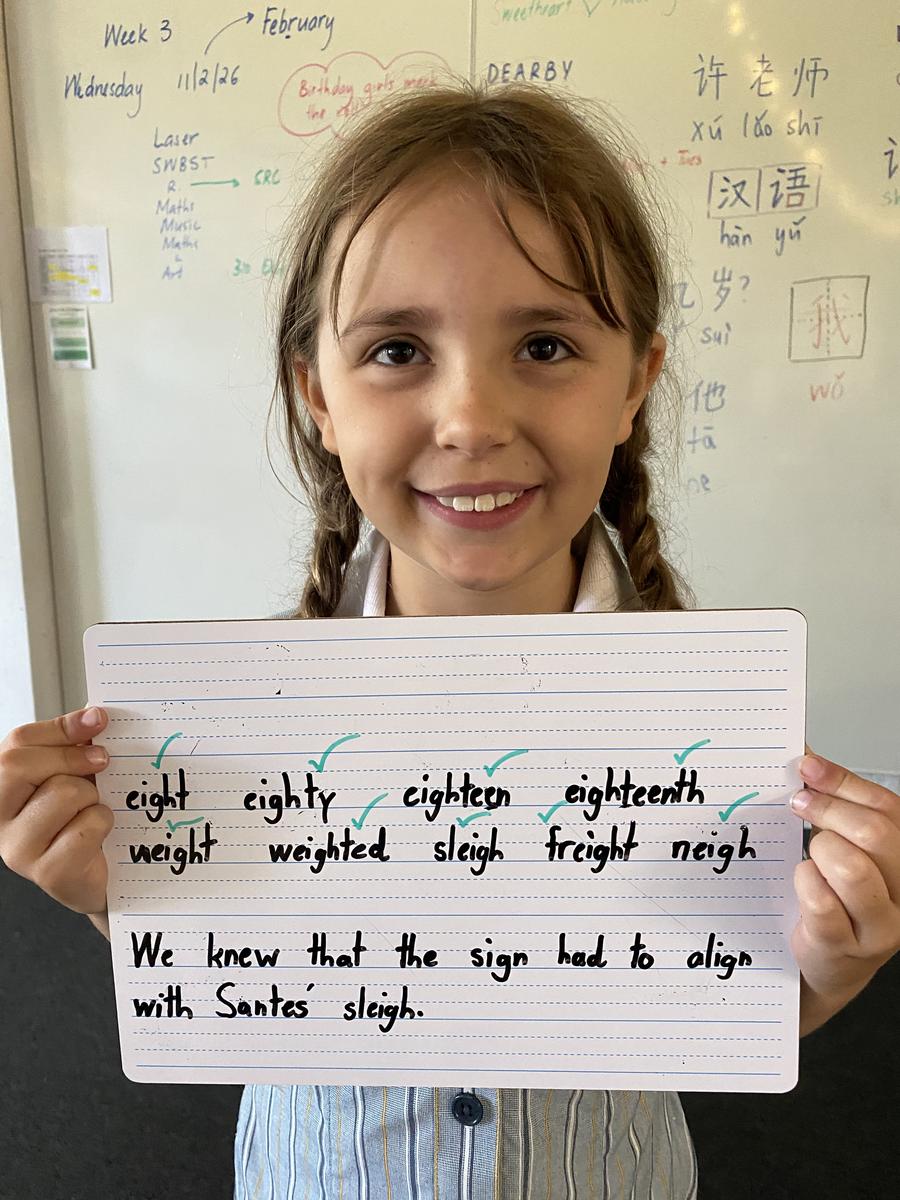 Week 3
February
Wednesday 11/2/26
Birthday girls
the
DEARBY
Sweetheart
Laser
SWBST
R. → CRC
Maths
Music
Maths
Art
许老师
xú lǎo shī
汉语
hàn yǔ
岁?
suì
我
wǒ
他
tā
eight eighty eighteen eighteenth
weight weighted sleigh freight neigh
We knew that the sign had to align
with Santes' sleigh.